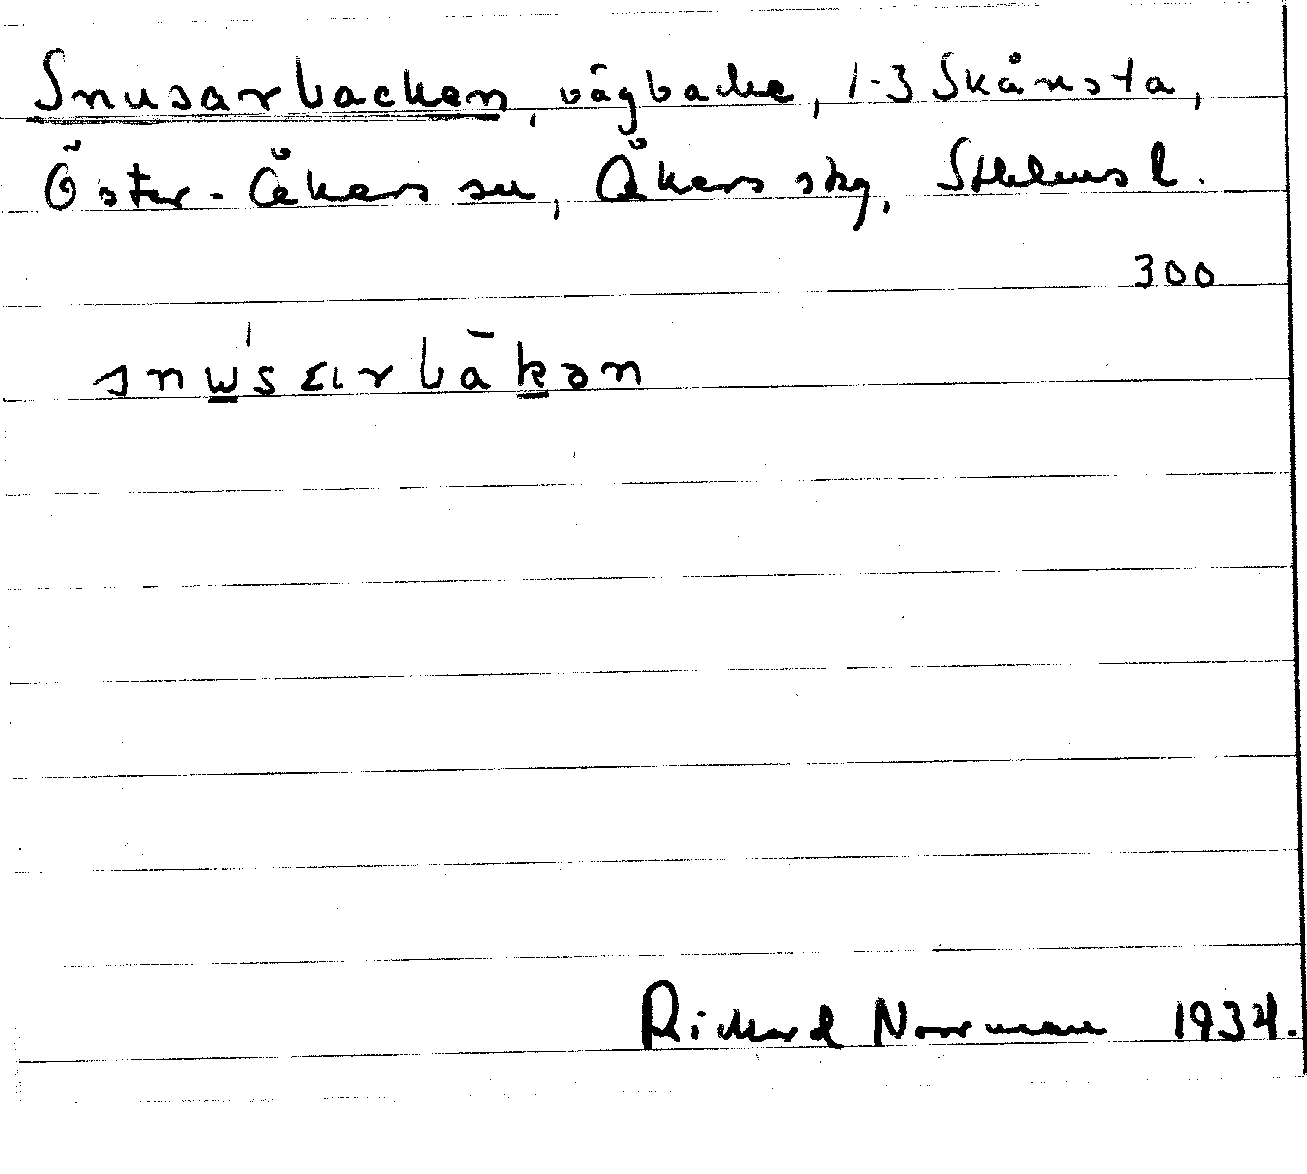 Snusarbacken, vägbacke, 1-3 Skånsta,
Öster-Åkers sn, Åkers skg, Sthlms l.
300
snu̲'sarbàk̲ən
Rickard Norrman 1934.